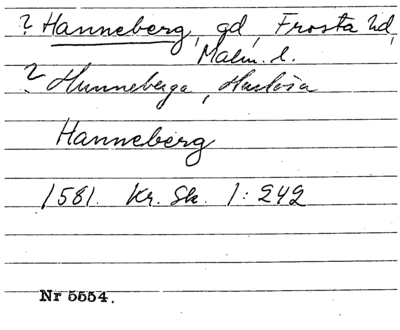 ? Hanneberg, gd, Frosta hd,
Malm. l.
? Hunneberga, Hurlösa
Hanneberg
1581. Kr. Sk. 1: 242
Nr 5554.